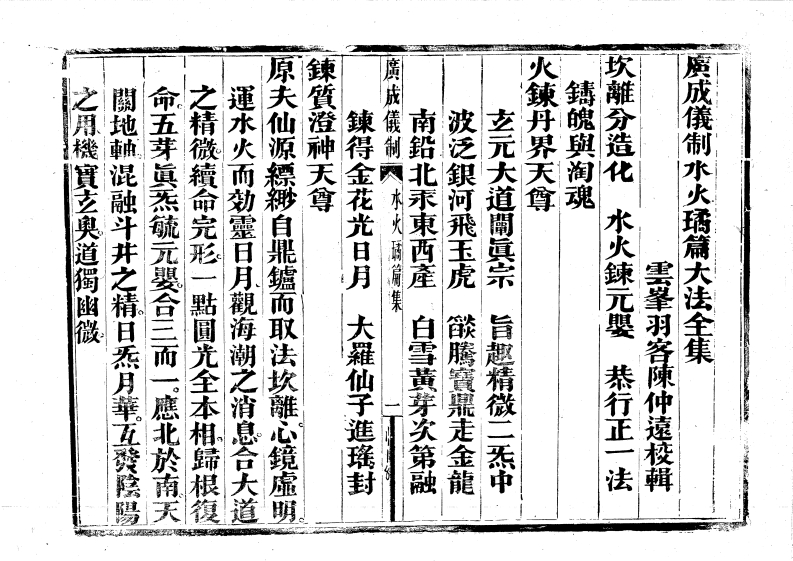 廣成儀制水火璚篇大法全集
雲峯羽客陳仲遠校輯
坎離分造化　水火鍊元嬰　恭行正一法
鑄魄與淘魂
火鍊丹界天尊
玄元大道闡眞宗　旨趣精微二炁中
波泛銀河飛玉虎　燄騰寶鼎走金龍
南鉛北汞東西產　白雪黃芽次第融
廣成儀制　水火璚篇集　一
鍊得金花光日月　大羅仙子進瑤封
鍊質澄神天尊
原夫仙源縹緲自鼎鑪而取法坎離心鏡虛明。
運水火而効靈日月觀海潮之消息。合大道
之精微續命完形。一點圓光全本相。歸根復
命。五芽眞炁毓元嬰。合二而一。應北於南天
關地軸。混融斗井之精。日炁月華。互發陰陽
之用。機實玄奥。道獨幽微。